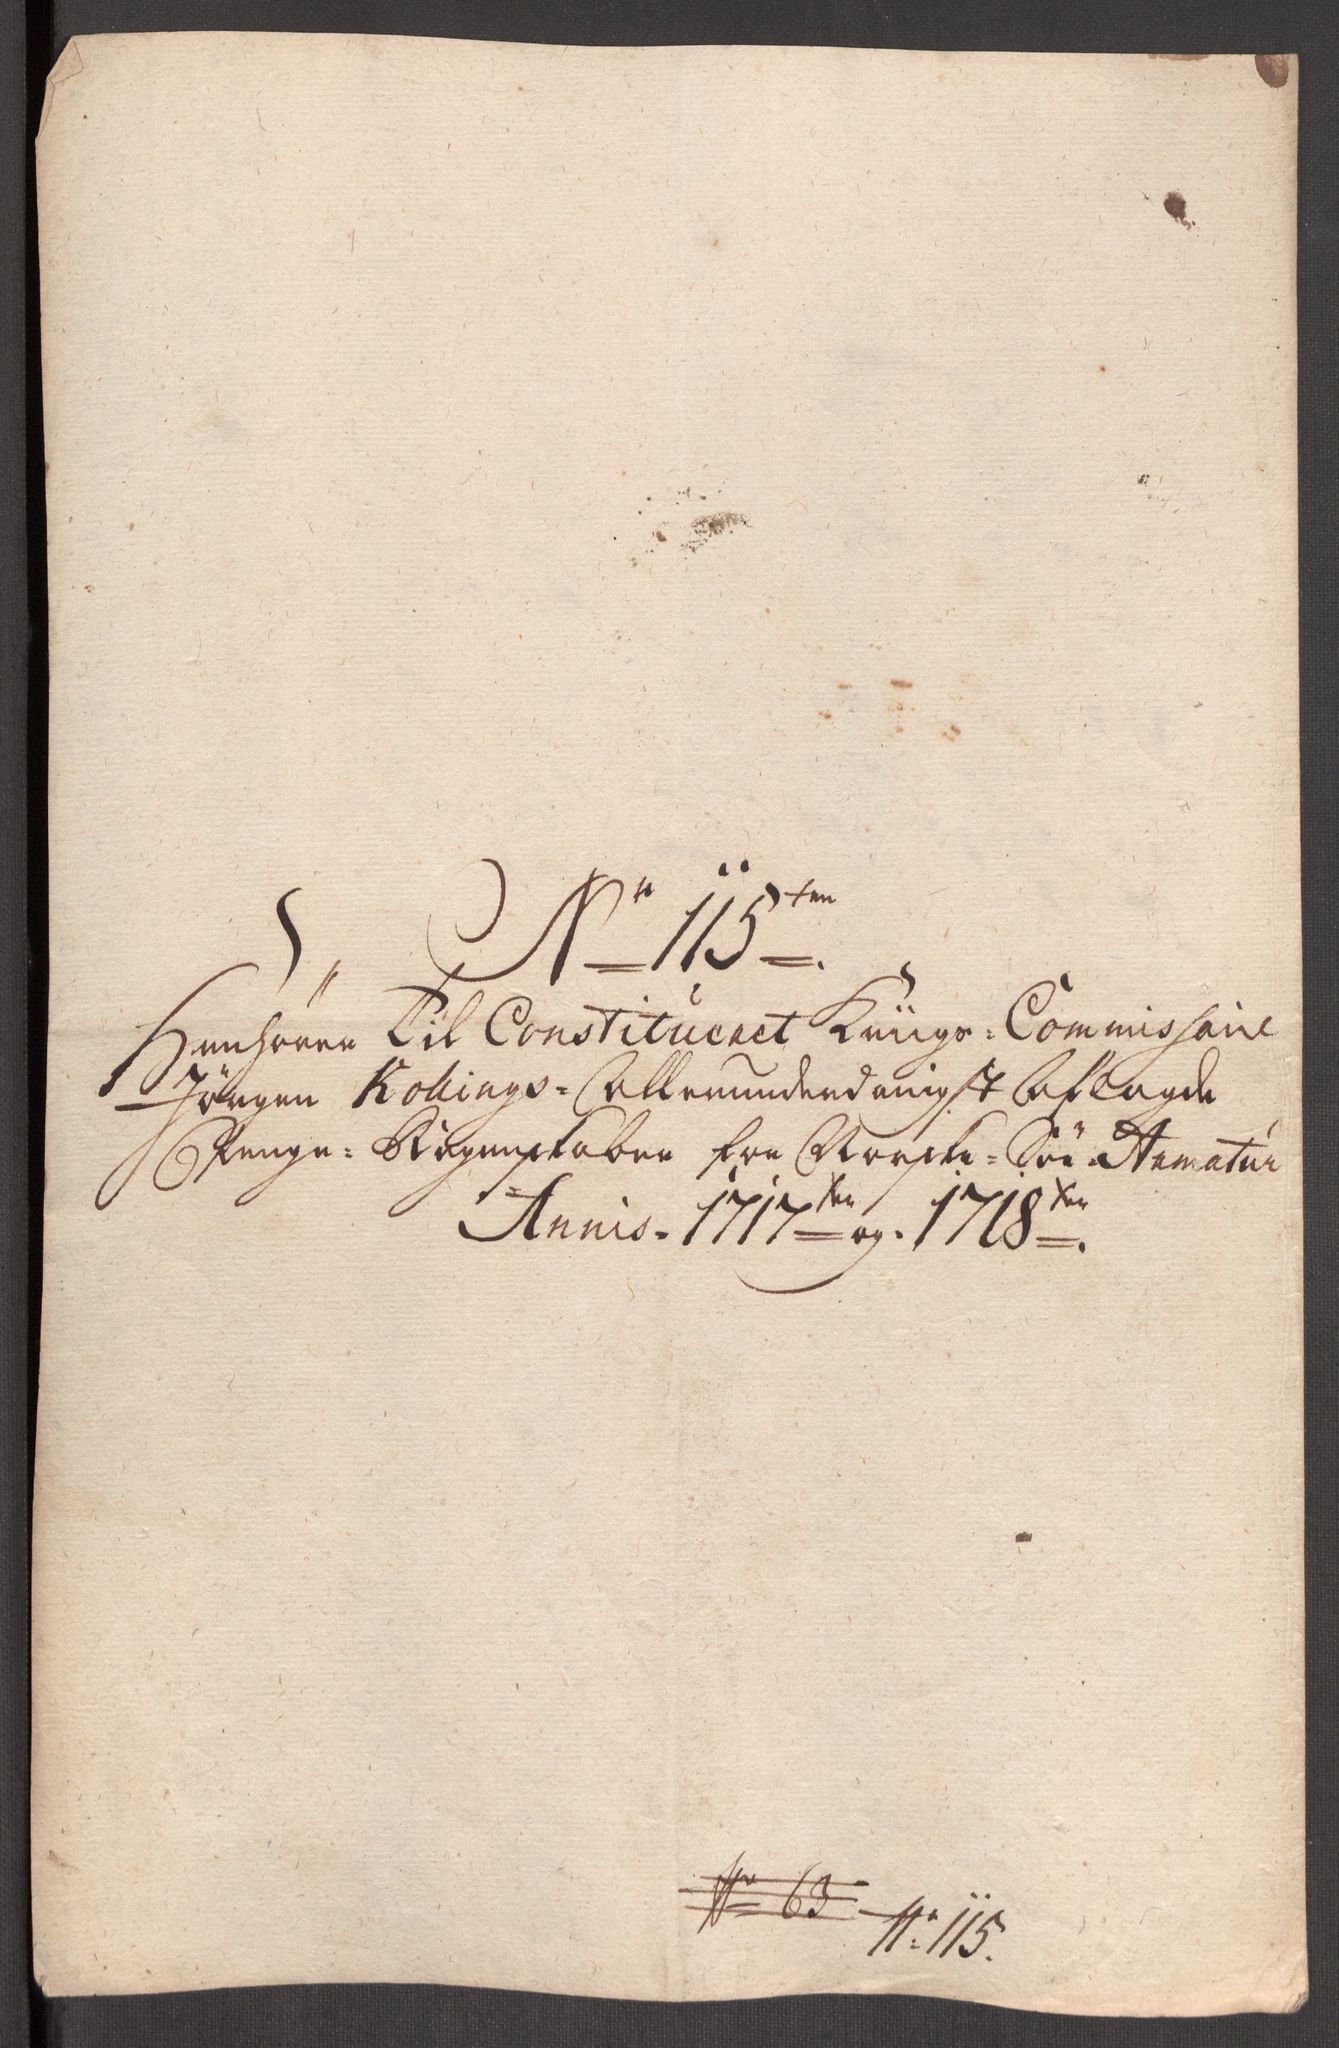 No 115ten
Henhörer Til Constitueret Kriigs-Commissair
Jörgen Kollings- Allerunderdanigst Aflagde
Penge-Regenskaber for Norske-Söe-Armatur
Annis. 1717ten og. 1718ten.
No 63
No 115.